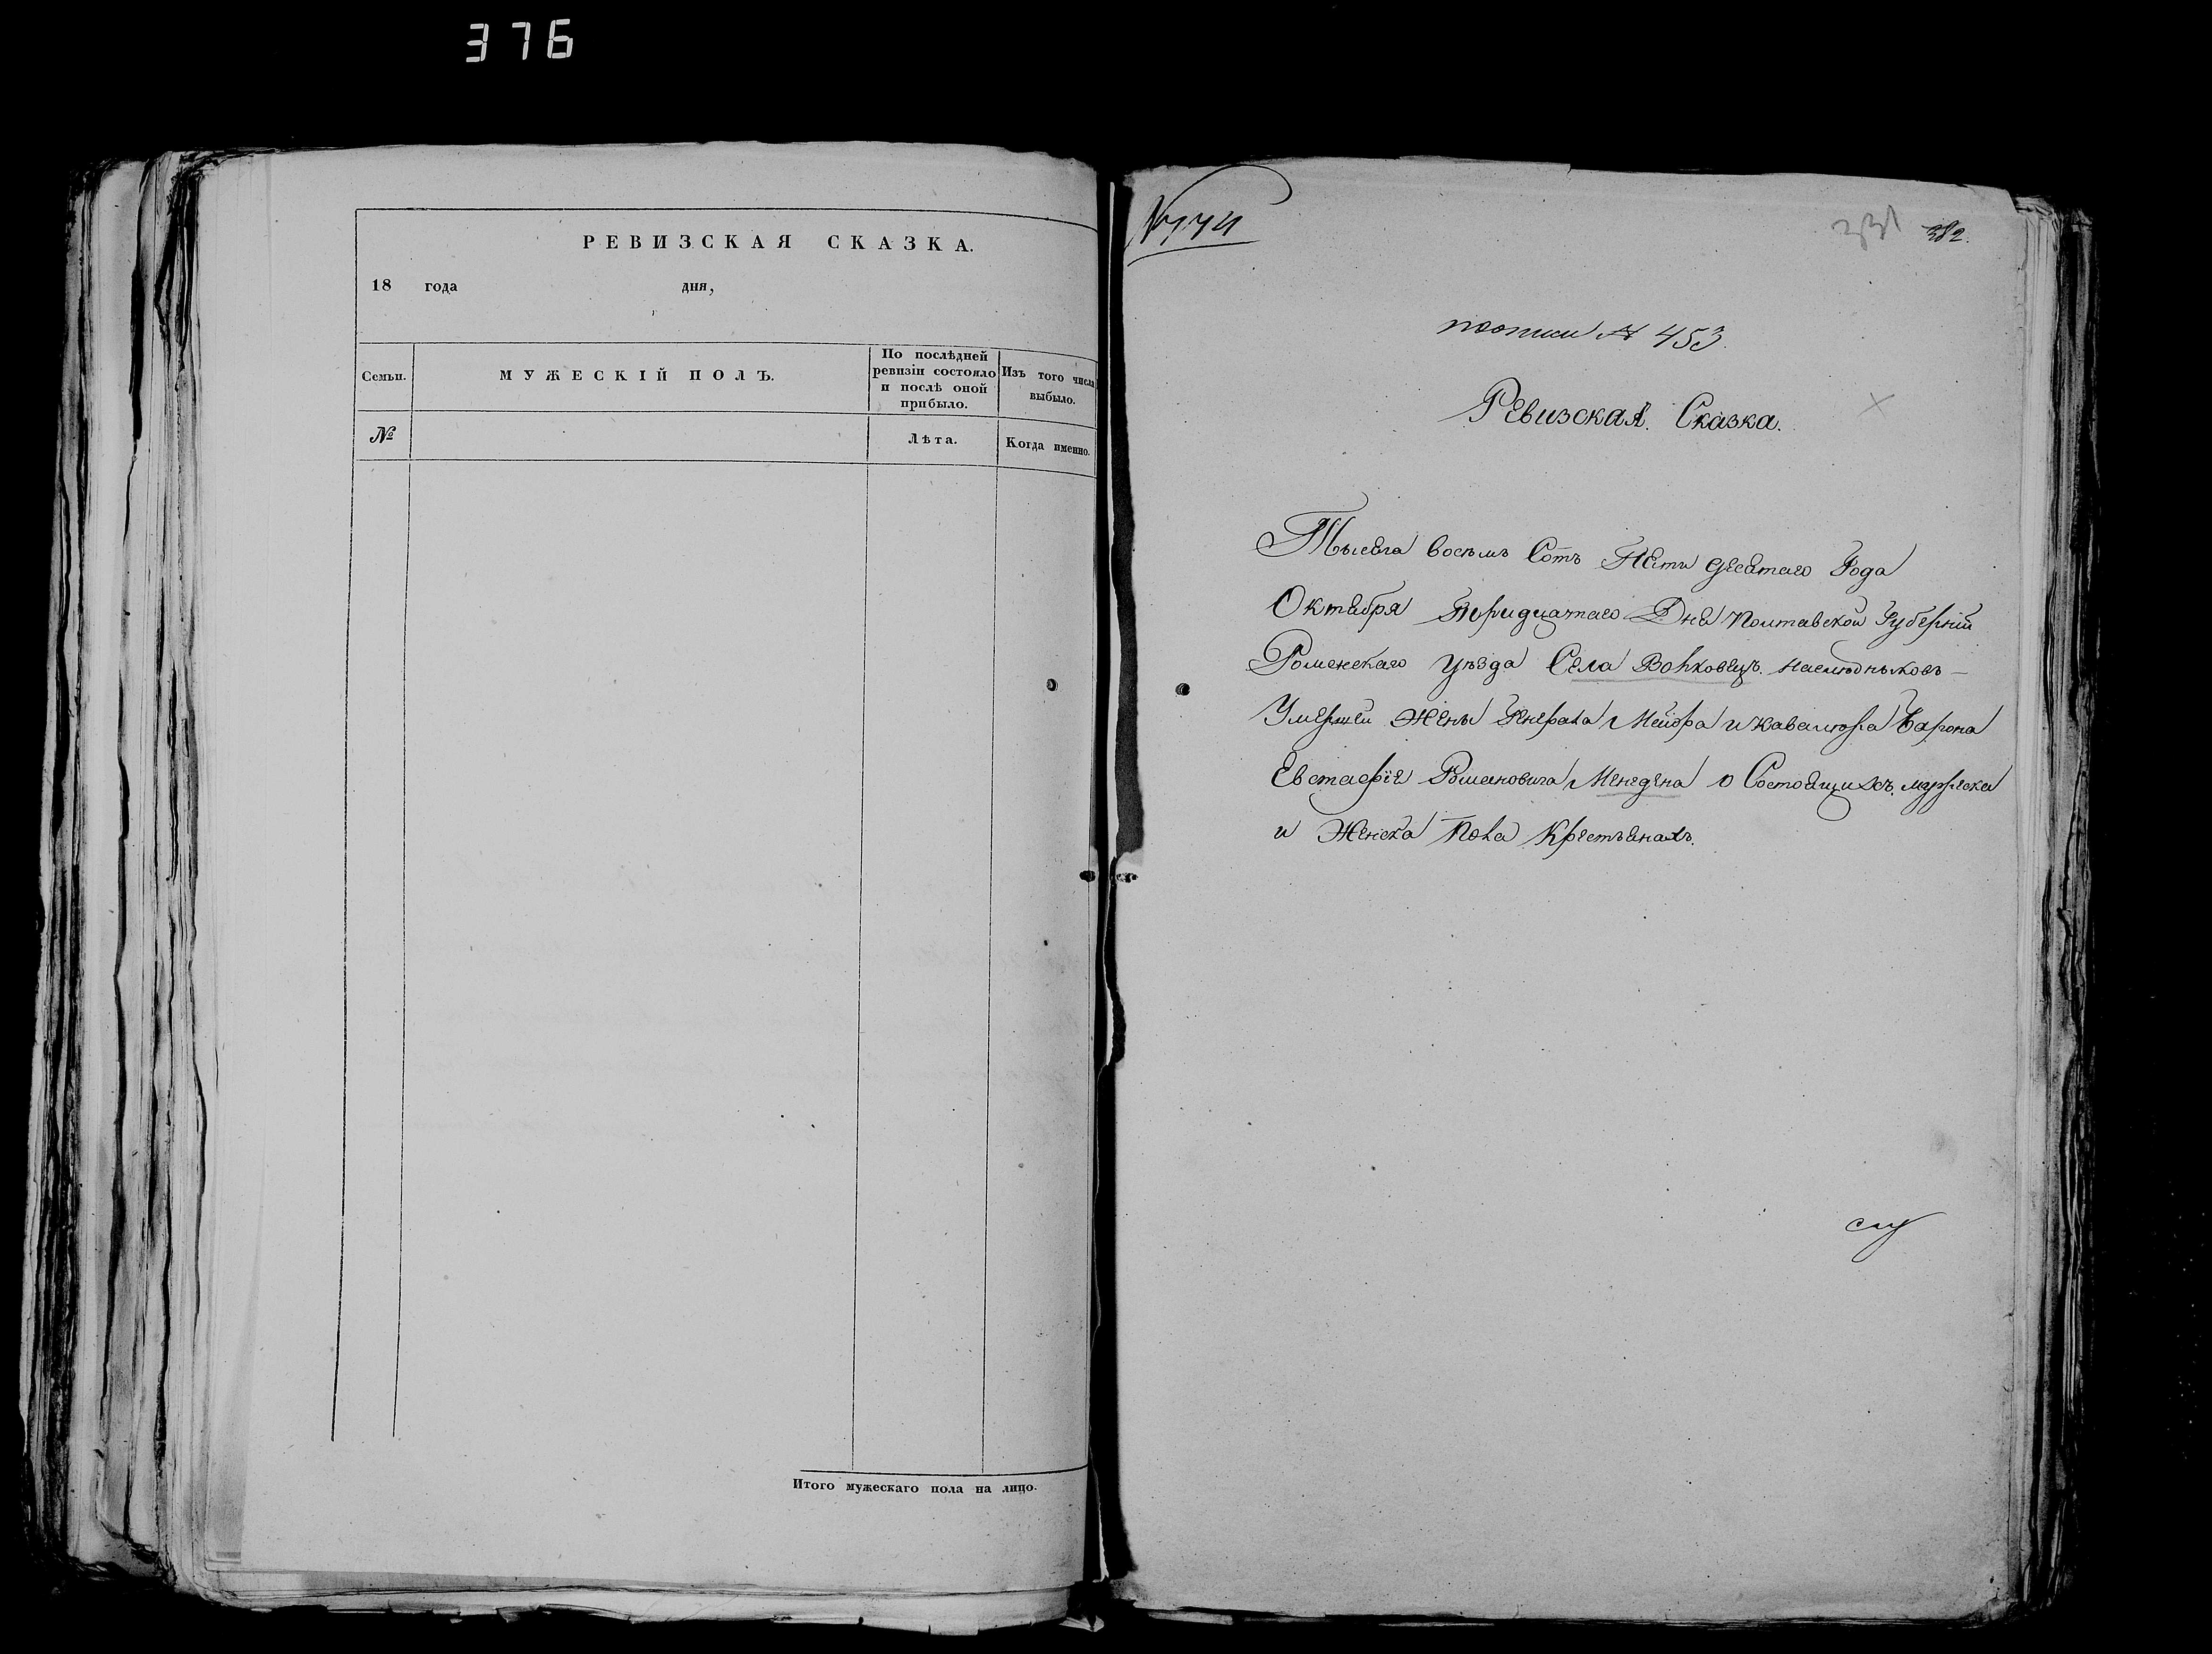 376
РЕВИЗСКАЯ СКАЗКА.
18 года дня,
Семьи.
МУЖЕСКІЙ ПОЛЪ.
По послѣдней
ревизіи состояло
и послѣ оной
прибыло.
Изъ того числа
выбыло.
№
Лѣта.
Когда именно.
Итого мужескаго пола на лицо.
382.
№ 453.
Ревизская Сказка.
Тысяча восемь Сотъ Пяти десятаго Года
Октября тридцатаго Дня Полтавской Губерніи
Роменскаго уѣзда Села Волковецъ наслѣдныковъ
Умершей Жены Генерала Маіора и кавалера Барона
Евстафія Романовича Менгдена о Состоящихъ мужеска
и Женска Пола Крестьянахъ.